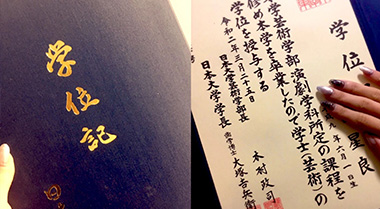 学位記
学位
星良
年六月一日生
学芸術学部演劇学科所定の課程を
修め本学を卒業したので学士(芸術)の
学位を授与する
令和二年三月二十五日
日本大学芸術学部長
木村政司
日本大学学長
大塚吉兵衛